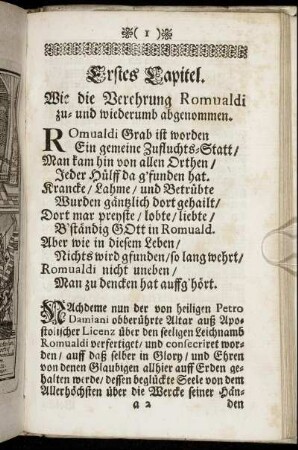 ( 1 )
Erstes Capitel.
Wie die Verehrung Romualdi
zu- und wiederumb abgenommen.
ROmualdi Grab ist worden
Ein gemeine Zufluchts-Statt/
Man kam hin von allen Orthen/
Jeder Hülff da g'funden hat.
Krancke/ Lahme/ und Betrübte
Wurden gäntzlich dort gehailt/
Dort mar preyste/ lobte/ liebte/
B'ständig GOtt in Romuald.
Aber wie in diesem Leben/
Nichts wird gfunden/ so lang wehrt/
Romualdi nicht uneben/
Man zu dencken hat auffg'hört.
NAchdeme nun der von heiligen Petro
Damiani obberührte Altar auß Apo-
stolischer Licenz über den seeligen Leichnamb
Romualdi verfertiget/ und consecriret wor-
den/ auff daß selber in Glory/ und Ehren
von denen Glaubigen allhier auff Erden ge-
halten werde/ dessen beglückte Seele von dem
Allerhöchsten über die Wercke seiner Hän-
a 2 den